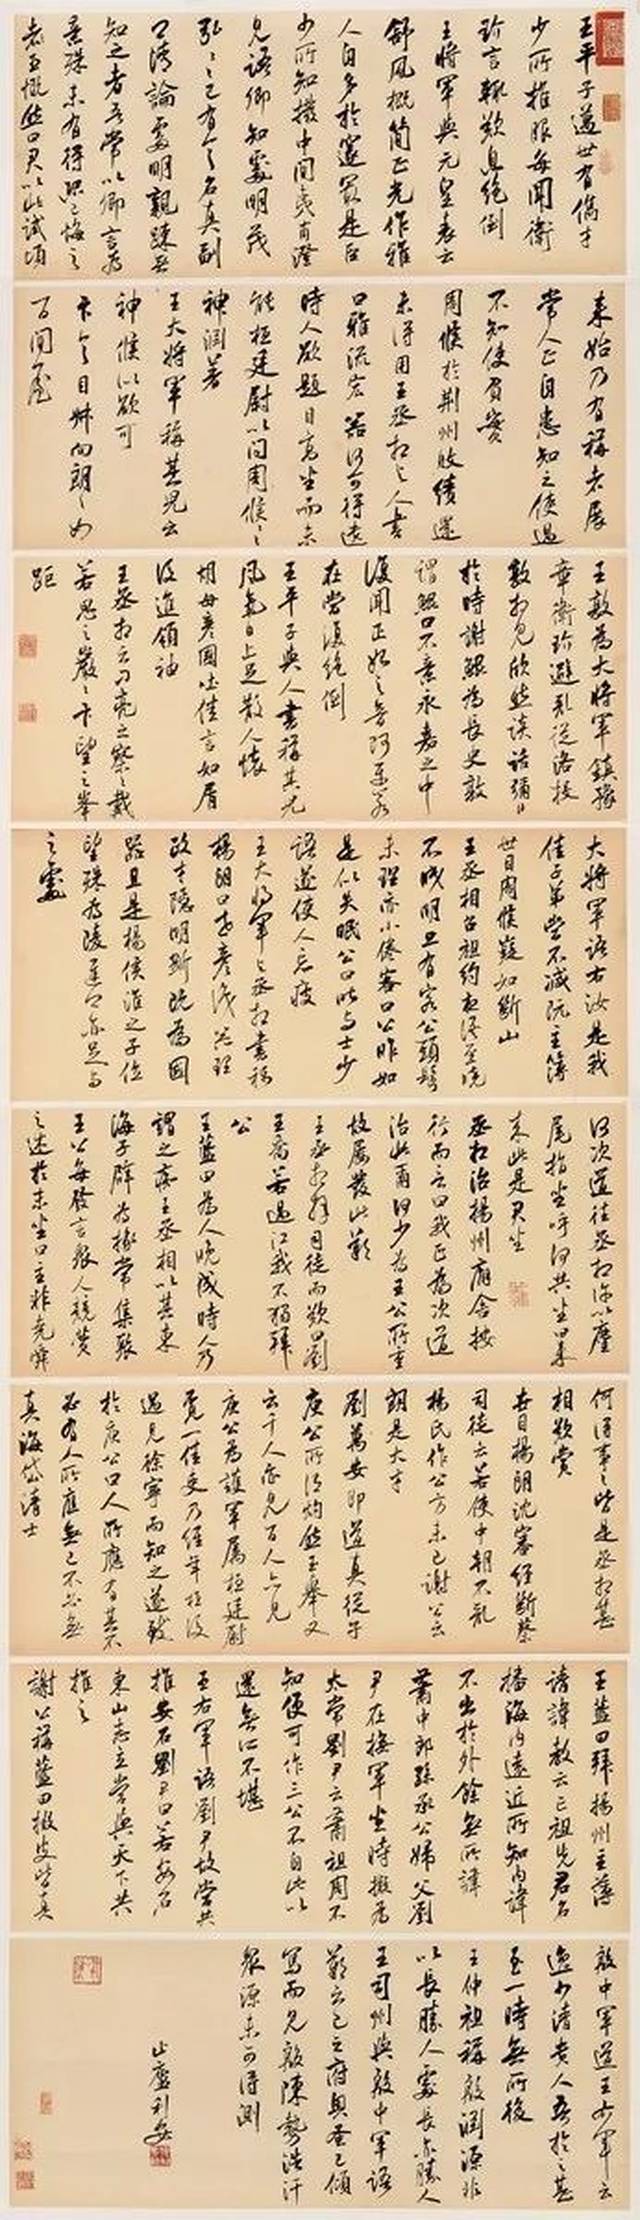 王平子邁世有儁才
少所推服每聞衛
玠言輒歎息絕倒
王將軍與元皇表云
舒風概簡正允作雅
人自多於邃最是臣
少所知拔中間夷甫澄
見語卿知處明茂
弘〻已有令名真副
清論處明親疎無
知之者吾常以卿言為
意殊未有得恐已悔之
慨然曰君以此試頃
來始乃有稱之者言
常人正自患知之使過
不知使負實
周侯於荊州敗績還
未得用王丞相與人書
曰雅流宏器何可得遺
時人欲題目高坐而未
能桓廷尉以問周侯〻
神淵著
王大將軍稱其兒云
神候似欲可
卞令目叔向朗〻如
百間屋
王敦為大將軍鎮豫
章衛玠避亂從洛投
敦相見欣然談話彌日
於時謝鯤為長史敦
謂鯤曰不意永嘉之中
復聞正始之音阿平若
在當復絕倒
王平子與人書稱其兒
風氣日上足散人懷
胡毋彥國吐佳言如屑
後進領袖
王丞相云刁亮之察〻戴
若思之巖〻卞望之峯
距
大將軍語右汝是我
佳子弟當不減阮主簿
世目周侯嶷如斷山
王丞相召祖約夜語至曉
不眠明旦有客公頭鬢
未理亦小倦客曰公昨如
是似失眠公曰昨與士少
語遂使人忘疲
王大將軍與丞相書稱
楊朗曰世彥識器理
致才隱明斷既為國
器且是楊侯淮之子位
望殊為陵遲卿亦足與
之處
何次道往丞相許以麈
尾指坐呼何共坐曰來
來此是君坐
丞相治揚州廨舍按
行而言曰我正為次道
治此爾何少為王公所重
故屢發此歎
王丞相拜司徒而歎曰劉
王喬若過江我不獨拜
公
王藍田為人晚成時人乃
謂之癡王丞相以其東
海子辟為掾常集聚
王公每發言眾人競贊
之述於末坐曰主非堯舜
何得事〻皆是丞相甚
相歎賞
世目楊朗沈審經斷蔡
司徒云若使中朝不亂
楊氏作公方未已謝公云
朗是大才
劉萬安即道真從子
庾公所謂灼然玉舉又
云千人亦見百人亦見
庾公為護軍屬桓廷尉
覓一佳吏乃經年桓後
遇見徐寧而知之遂致
於庾公曰人所應有其不
必有人所應無己不必無
真海岱清士
王藍田拜揚州主簿
請諱教云亡祖先君名
播海內遠近所知內諱
不出於外餘無所諱
蕭中郎孫承公婦父劉
尹在撫軍坐時擬為
太常劉尹云蕭祖周不
知便可作三公不自此以
還無所不堪
王右軍語劉尹故當共
推安石劉尹曰若安石
東山志立當與天下共
推之
謝公稱藍田掇皮皆真
殷中軍道王右軍云
逸少清貴人吾於之甚
至一時無所後
王仲祖稱殷淵源非
以長勝人處長亦勝人
王司州與殷中軍語
歎云己之府奧蚤已傾
寫而見殷陳勢浩汗
眾源未可得測